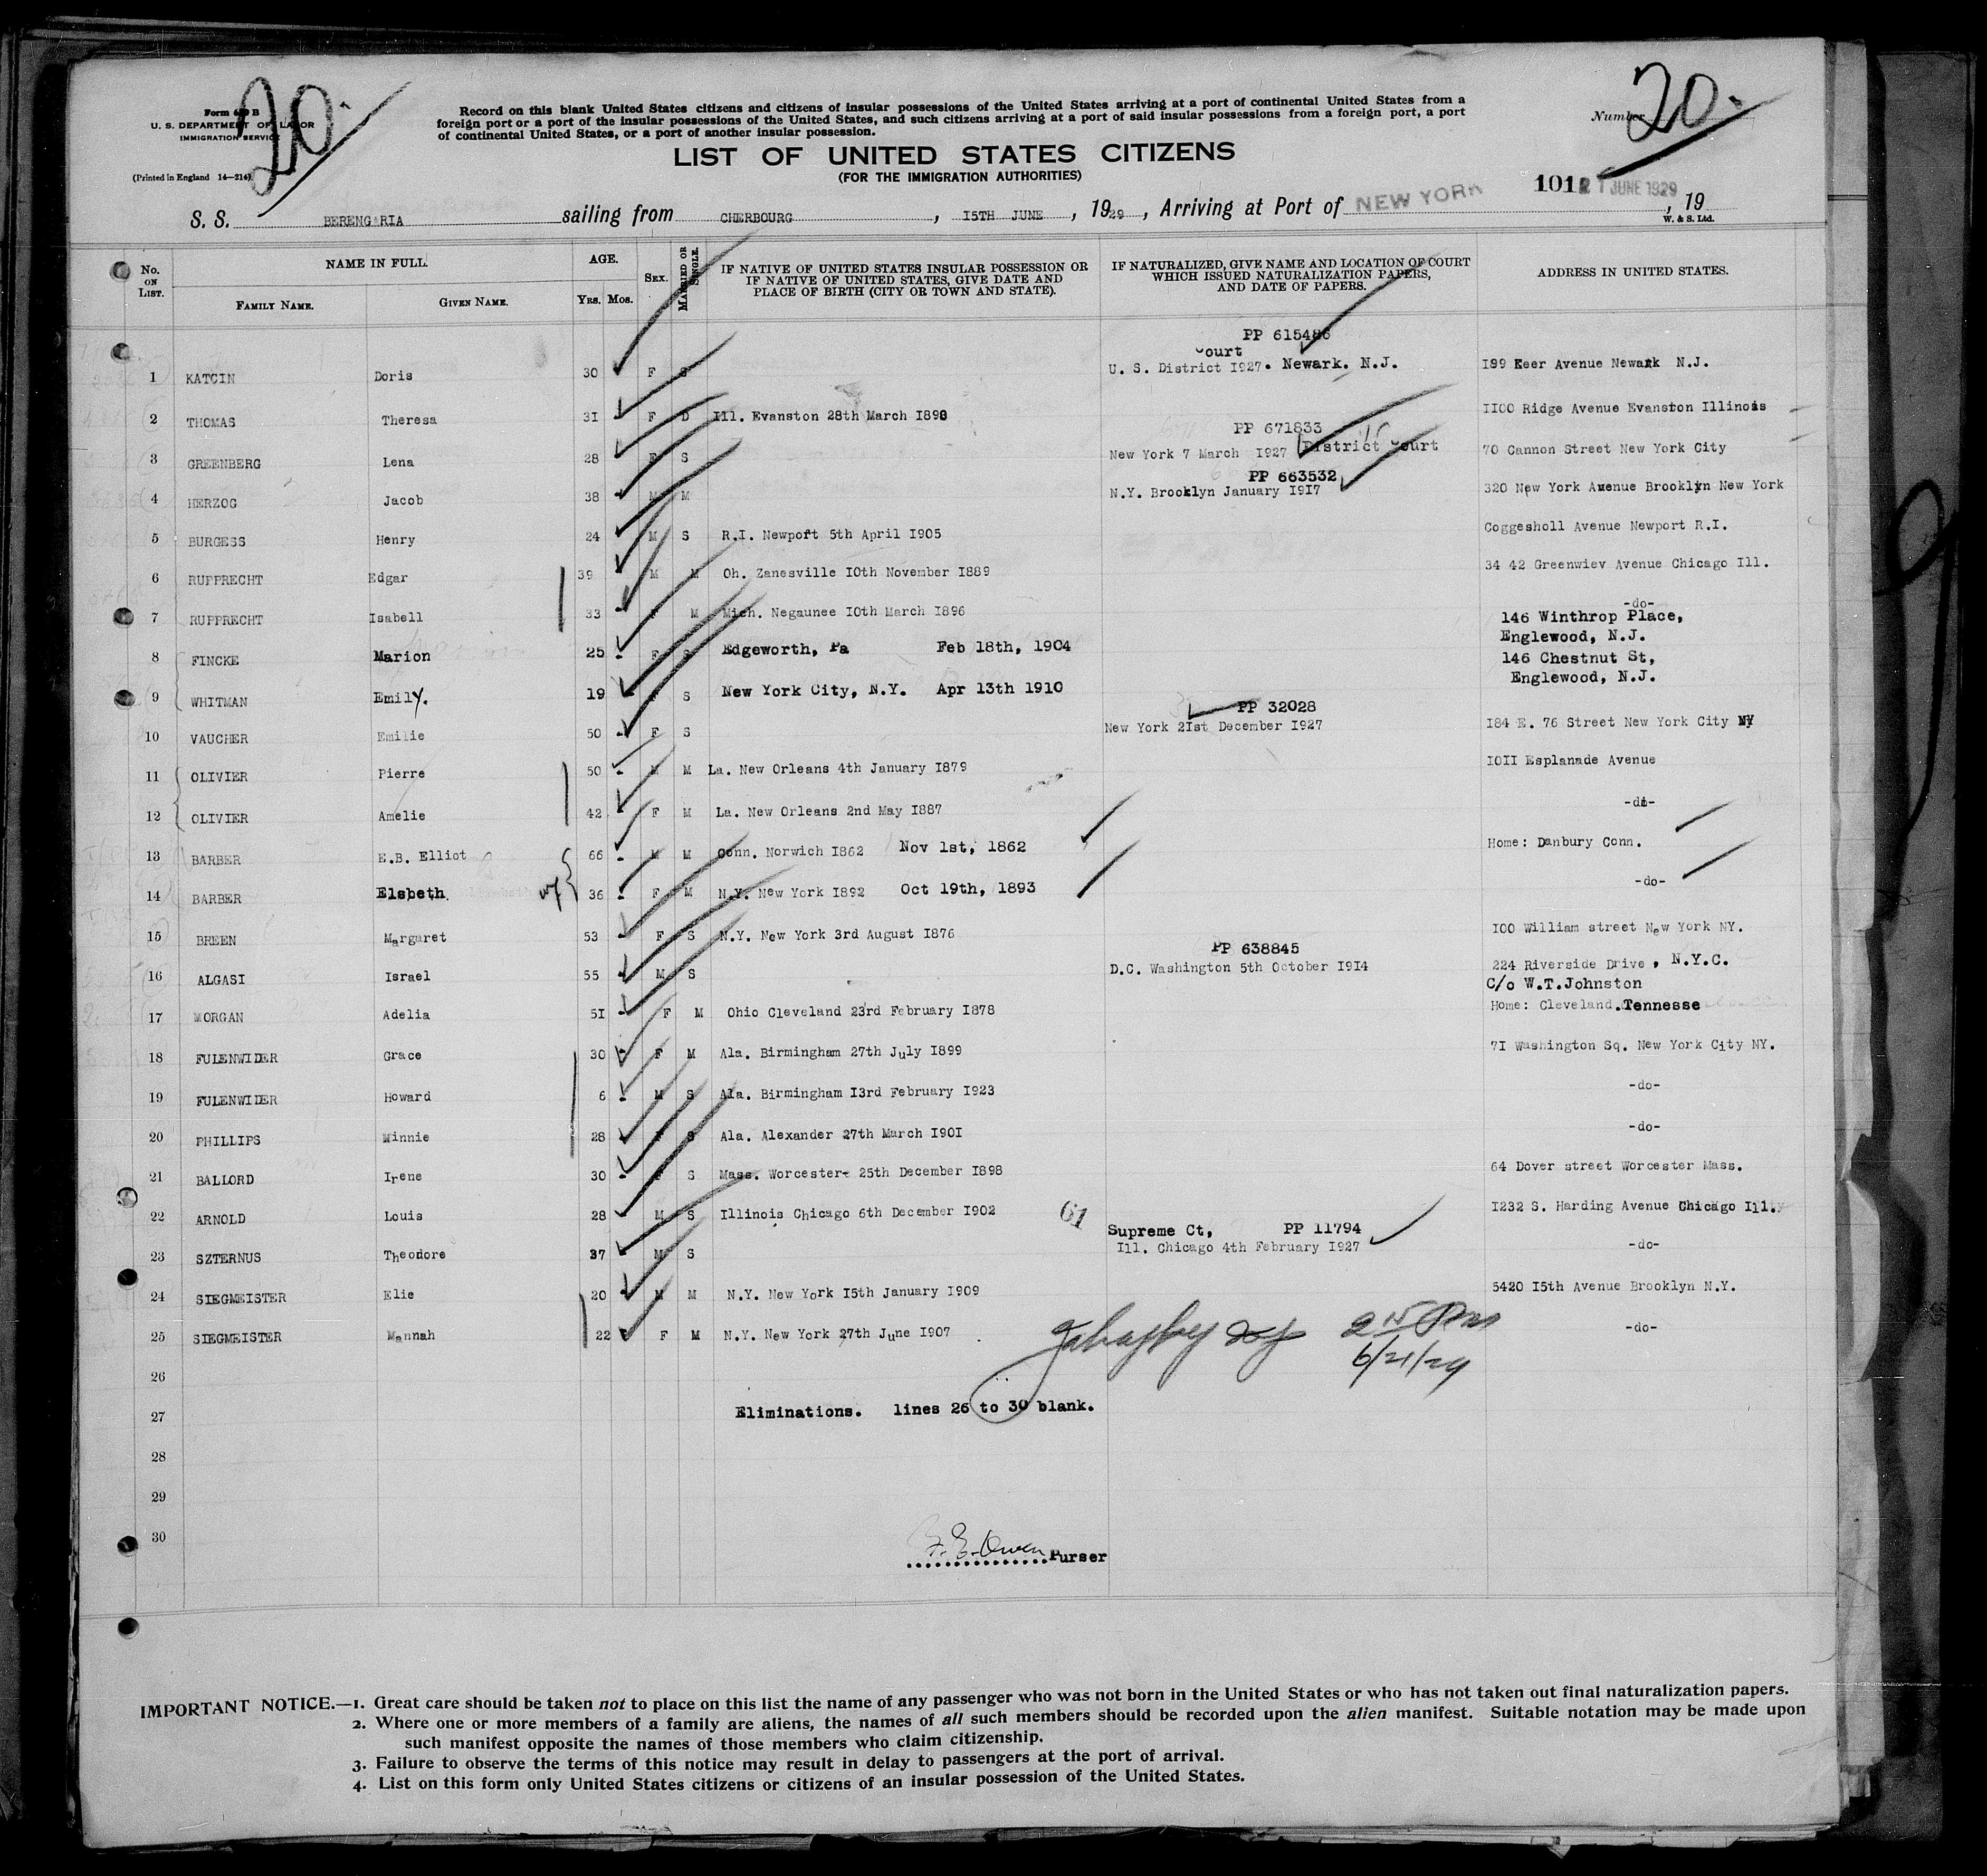 20.
Form 630 B
U. S. DEPARTMENT OF LABOR
IMMIGRATION SERVICE
(Printed in England 14—214)
Record on this blank United States citizens and citizens of insular possessions of the United States arriving at a port of continental United States from a
foreign port or a port of the insular possessions of the United States, and such citizens arriving at a port of said insular possessions from a foreign port, a port
of continental United States, or a port of another insular possession.
Number 20.
LIST OF UNITED STATES CITIZENS
(FOR THE IMMIGRATION AUTHORITIES)
101 21 JUNE 1929
S. S. BERENGARIA sailing from CHERBOURG, I5TH JUNE, 1929, Arriving at Port of NEW YORK, 19
W. & S. Ltd.
No. ON LIST. NAME IN FULL. FAMILY NAME. GIVEN NAME. AGE. YRS. MOS. SEX. MARRIED OR SINGLE. IF NATIVE OF UNITED STATES INSULAR POSSESSION OR IF NATIVE OF UNITED STATES, GIVE DATE AND PLACE OF BIRTH (CITY OR TOWN AND STATE). IF NATURALIZED, GIVE NAME AND LOCATION OF COURT WHICH ISSUED NATURALIZATION PAPERS, AND DATE OF PAPERS. ADDRESS IN UNITED STATES.
PP 615486
Court
1 KATCIN Doris 30 F S U. S. District I927. Newark. N.J. I99 Keer Avenue Newark N.J.
2 THOMAS Theresa 3I F D Ill. Evanston 28th March I898 II00 Ridge Avenue Evanston Illinois
PP 671833
3 GREENBERG Lena 28 F S New York 7 March I927 District Court 70 Cannon Street New York City
PP 663532
4 HERZOG Jacob 38 M M N.Y. Brooklyn January I9I7 320 New York Avenue Brooklyn New York
5 BURGESS Henry 24 M S R.I. Newport 5th April I905 Coggesholl Avenue Newport R.I.
6 RUPPRECHT Edgar 39 M M Oh. Zanesville I0th November I889 34 42 Greenwiev Avenue Chicago Ill.
7 RUPPRECHT Isabell 33 F M Mich. Negaunee I0th March I896 -do-
146 Winthrop Place,
Englewood, N.J.
8 FINCKE Marion 25 F S Edgeworth, Pa Feb 18th, 1904
146 Chestnut St,
Englewood, N.J.
9 WHITMAN Emily. 19 F S New York City, N.Y. Apr 13th 1910
PP 32028
10 VAUCHER Emilie 50 F S New York 2Ist December I927 I84 E. 76 Street New York City NY
11 OLIVIER Pierre 50 M M La. New Orleans 4th January I879 I0II Esplanade Avenue
12 OLIVIER Amelie 42 F M La. New Orleans 2nd May I887 -do-
13 BARBER E.B. Elliot 66 M M Conn. Norwich I862 Nov 1st, 1862 Home: Danbury Conn.
14 BARBER Elsbeth. 36 F M N.Y. New York I892 Oct 19th, 1893 -do-
15 BREEN Margaret 53 F S N.Y. New York 3rd August I876 I00 William street New York NY.
PP 638845
16 ALGASI Israel 55 M S D.C. Washington 5th October I9I4 224 Riverside Drive, N.Y.C.
C/o W.T.Johnston
17 MORGAN Adelia 5I F M Ohio Cleveland 23rd February I878 Home: Cleveland.Tennesse
18 FULENWIDER Grace 30 F M Ala. Birmingham 27th July I899 7I Washington Sq. New York City NY.
19 FULENWIDER Howard 6 M S Ala. Birmingham I3rd February I923 -do-
20 PHILLIPS Minnie 28 F S Ala. Alexander 27th March I90I -do-
21 BALLORD Irene 30 F S Mass. Worcester- 25th December I898 64 Dover street Worcester Mass.
22 ARNOLD Louis 28 M S Illinois Chicago 6th December I902 61 I232 S. Harding Avenue Chicago Ill.
Supreme Ct, PP 11794
23 SZTERNUS Theodore 37 M S Ill. Chicago 4th February I927 -do-
24 SIEGMEISTER Elie 20 M M N.Y. New York I5th January I909 5420 I5th Avenue Brooklyn N.Y.
25 SIEGMEISTER Hannah 22 F M N.Y. New York 27th June I907 -do-
6/21/29
26
27 Eliminations. lines 26 to 30 blank.
28
29
30
F. E. Owen Purser
IMPORTANT NOTICE.—1. Great care should be taken not to place on this list the name of any passenger who was not born in the United States or who has not taken out final naturalization papers.
2. Where one or more members of a family are aliens, the names of all such members should be recorded upon the alien manifest. Suitable notation may be made upon
such manifest opposite the names of those members who claim citizenship.
3. Failure to observe the terms of this notice may result in delay to passengers at the port of arrival.
4. List on this form only United States citizens or citizens of an insular possession of the United States.